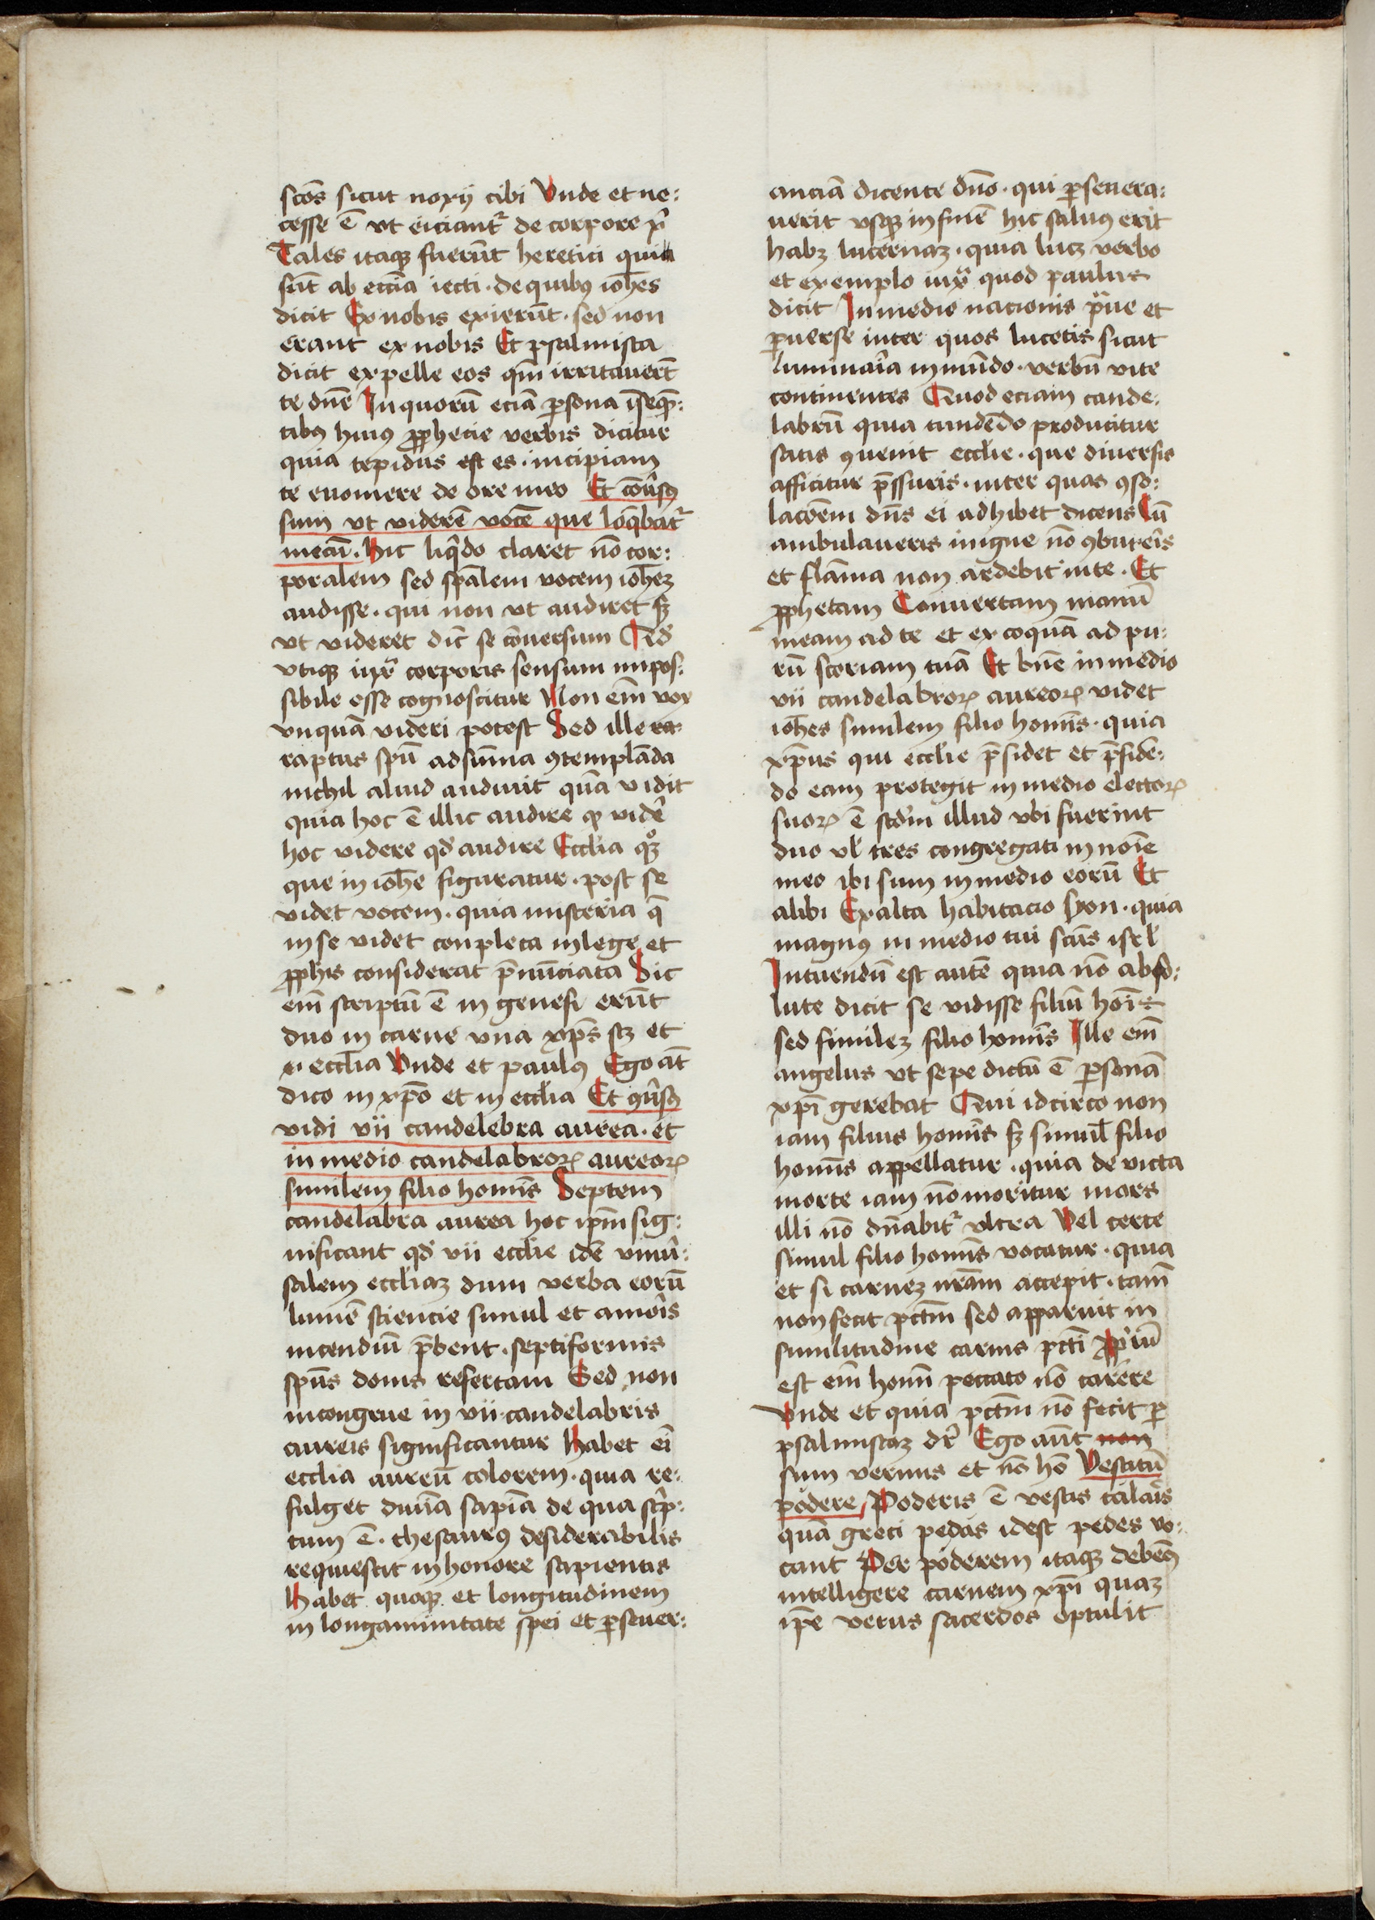 scōs sicut noxij cibi Unde et ne:
cesse ē vt eiciantr̉ de corpore xp̄i
Tales itaqꝫ fuerūt heretici quia
sūt ab eccīa iecti · de quibꝯ ioh̄es
dicit Ex nobis exierūt · sed non
erant ex nobis Et psalmista
dicit expelle eos qm̄ irritauerūt
te dn̄e In quorū eciā ꝑsona īseqn̄:
tibꝯ huiꝯ ꝓphetie verbis dicitur
quia tepidus est es · incipiam
te euomere de ore meo Et cōuersꝯ
sum vt viderē vocē que loq̄batr̉
mecū · Hic liq̇do claret nō cor:
poralem sed sp̄alem vocem ioh̄eꝫ
audisse · qui non vt audiret sꝫ
vt videret dic̄ se cōuersum Qd̄
vtiqꝫ iuxᵃ corporis sensum impos:
sibile esse cognoscitur Non em̄ vox
vnquā videri potest Sed ille ra:
raptus sp̄u ad sūma ꝯtemplāda
nichil aliud audiuit quā vidit
quia hoc ē illic audire qꝫ vidē
hoc videre qd̄ audire Eccl̄ia qͦꝫ
que in ioh̄e figuratur · post se
videt vocem · quia misteria q̄
in se videt conpleta in lege et
ꝓphis considerat p̄nunciata Sic
em̄ scriptū ē in genesi erūt
duo in carne vna xp̄s scꝫ et
eccl̄ia Unde et paulꝯ Ego aūt
dico in xp̄o et in eccl̄ia Et ꝯuersꝯ
vidi vii candelebra aurea · et
in medio candelabroꝝ aureoꝝ
similem filio homīs Septem
candelabra aurea hoc ip̄m sig:
nificant qd̄ vii eccl̄ie idē vniuer:
salem eccl̄iaꝫ dum verba eorū
lumē sciencie simul et amoris
incendiū p̄bent · septiformis
sp̄us donis refertam Sed non
incongrue in vii candelabris
aureis significantur Habet em̄
eccl̄ia aureū colorem · quia re:
fulget diuīa sapīa de qua scrip:
tum ē · thesaurꝯ desiderabilis
requiescit in honore sapientis
Habet quoqꝫ et longitudinem
in longanimitate spei et ꝑseuer:
anciā dicente dn̄o · qui ꝑseuera:
uerit vsqꝫ in finē hic saluꝯ erit
habꝫ lucernaꝫ · quia lucꝫ verbo
et exemplo iuxᵃ quod paulus
dicit In medio nacionis praue et
ꝑuerse inter quos lucetis sicut
luminaīa in mūdo · verbū vite
continentes Quod eciam cande:
labrū quia tundēdo producitur
satis ꝯuenit eccl̄ie · que diuersis
afficitur p̄ssuris · inter quas ꝯso:
lacōem dn̄s ei adhibet dicens Cū
ambulaueris in igne nō ꝯbureris
et flāma non ardebit in te · Et
ꝓphetam Conuertam manū
meam ad te et excoquā ad pu:
rū scoriam tuā Et bn̄e in medio
vii candelabroꝝ aureoꝝ videt
ioh̄es similem filio homīs · quia
xp̄us qui eccl̄ie p̄sidet et p̄siden:
do eam protegit in medio electoꝝ
suoꝝ ē scd̄m illud vbi fuerint
duo vl̄ tres congregati in noīe
meo ibi sum in medio eorū Et
alibi Exalta habitacio syon · quia
magnꝯ in medio tui scūs isrl̄
Intuendū est autē quia nō abso:
lute dicit se vidisse filiū hoīs
sed simileꝫ filio homīs Ille em̄
angelus vt sepe dictū ē ꝑsonā
xp̄i gerebat Qui idcirco non
iam filius homīs sꝫ simil̄ filio
homīs appellatur · quia deuicta
morte iam nō moritur mors
illi nō dn̄abitr̉ vltra Uel certe
simil filio homīs vocatur · quia
et si carneꝫ nr̄am accepit · tamē
non fecit pctm̄ sed apparuit in
similitudine carnis pcti Propriū
est em̄ homī peccato nō carere
Unde et quia pctm̄ nō fecit ꝑ
psalmistaꝫ dr̄ Ego aūt non
sum vermis et nō ho Uestitū
podere Poderis ē vestis talaris
quā greci pedas idest pedes vo:
cant Per poderem itaqꝫ debemꝯ
intelligere carnem xp̄i quaꝫ
ip̄e verus sacerdos optulit